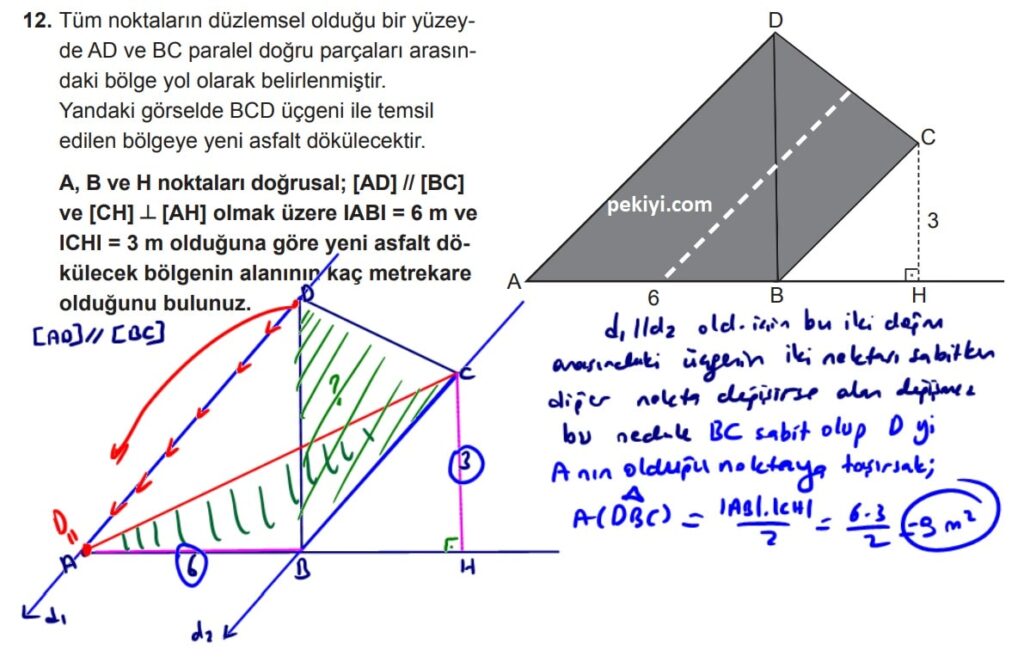 12. Tüm noktaların düzlemsel olduğu bir yüzey-
de AD ve BC paralel doğru parçaları arasın-
daki bölge yol olarak belirlenmiştir.
Yandaki görselde BCD üçgeni ile temsil
edilen bölgeye yeni asfalt dökülecektir.
A, B ve H noktaları doğrusal; [AD] // [BC]
ve [CH] ⊥ [AH] olmak üzere IABI = 6 m ve
ICHI = 3 m olduğuna göre yeni asfalt dö-
külecek bölgenin alanının kaç metrekare
olduğunu bulunuz.
D
C
pekiyi.com
3
A
6
B
H
[AD] // [BC]
D
?
C
3
D
A
6
B
H
d₁
d₂
d₁ // d₂ old. için bu iki doğru
arasındaki üçgenin iki noktası sabitken
diğer nokta değişirse alan değişmez
bu nedenle BC sabit olup D yi
A nın olduğu noktaya taşırsak;
A(DBC) = |AB|.|CH| / 2 = 6.3 / 2 = 9 m²